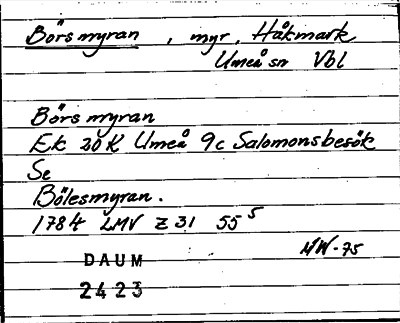 Börsmyran, myr, Håkmark
Umeå sn Vbl
Börsmyran
Ek 20K Umeå 9c Salomonsbesök
Se
Bölesmyran.
1784 LMV Z 31 55⁵
MW-75
DAUM
2423